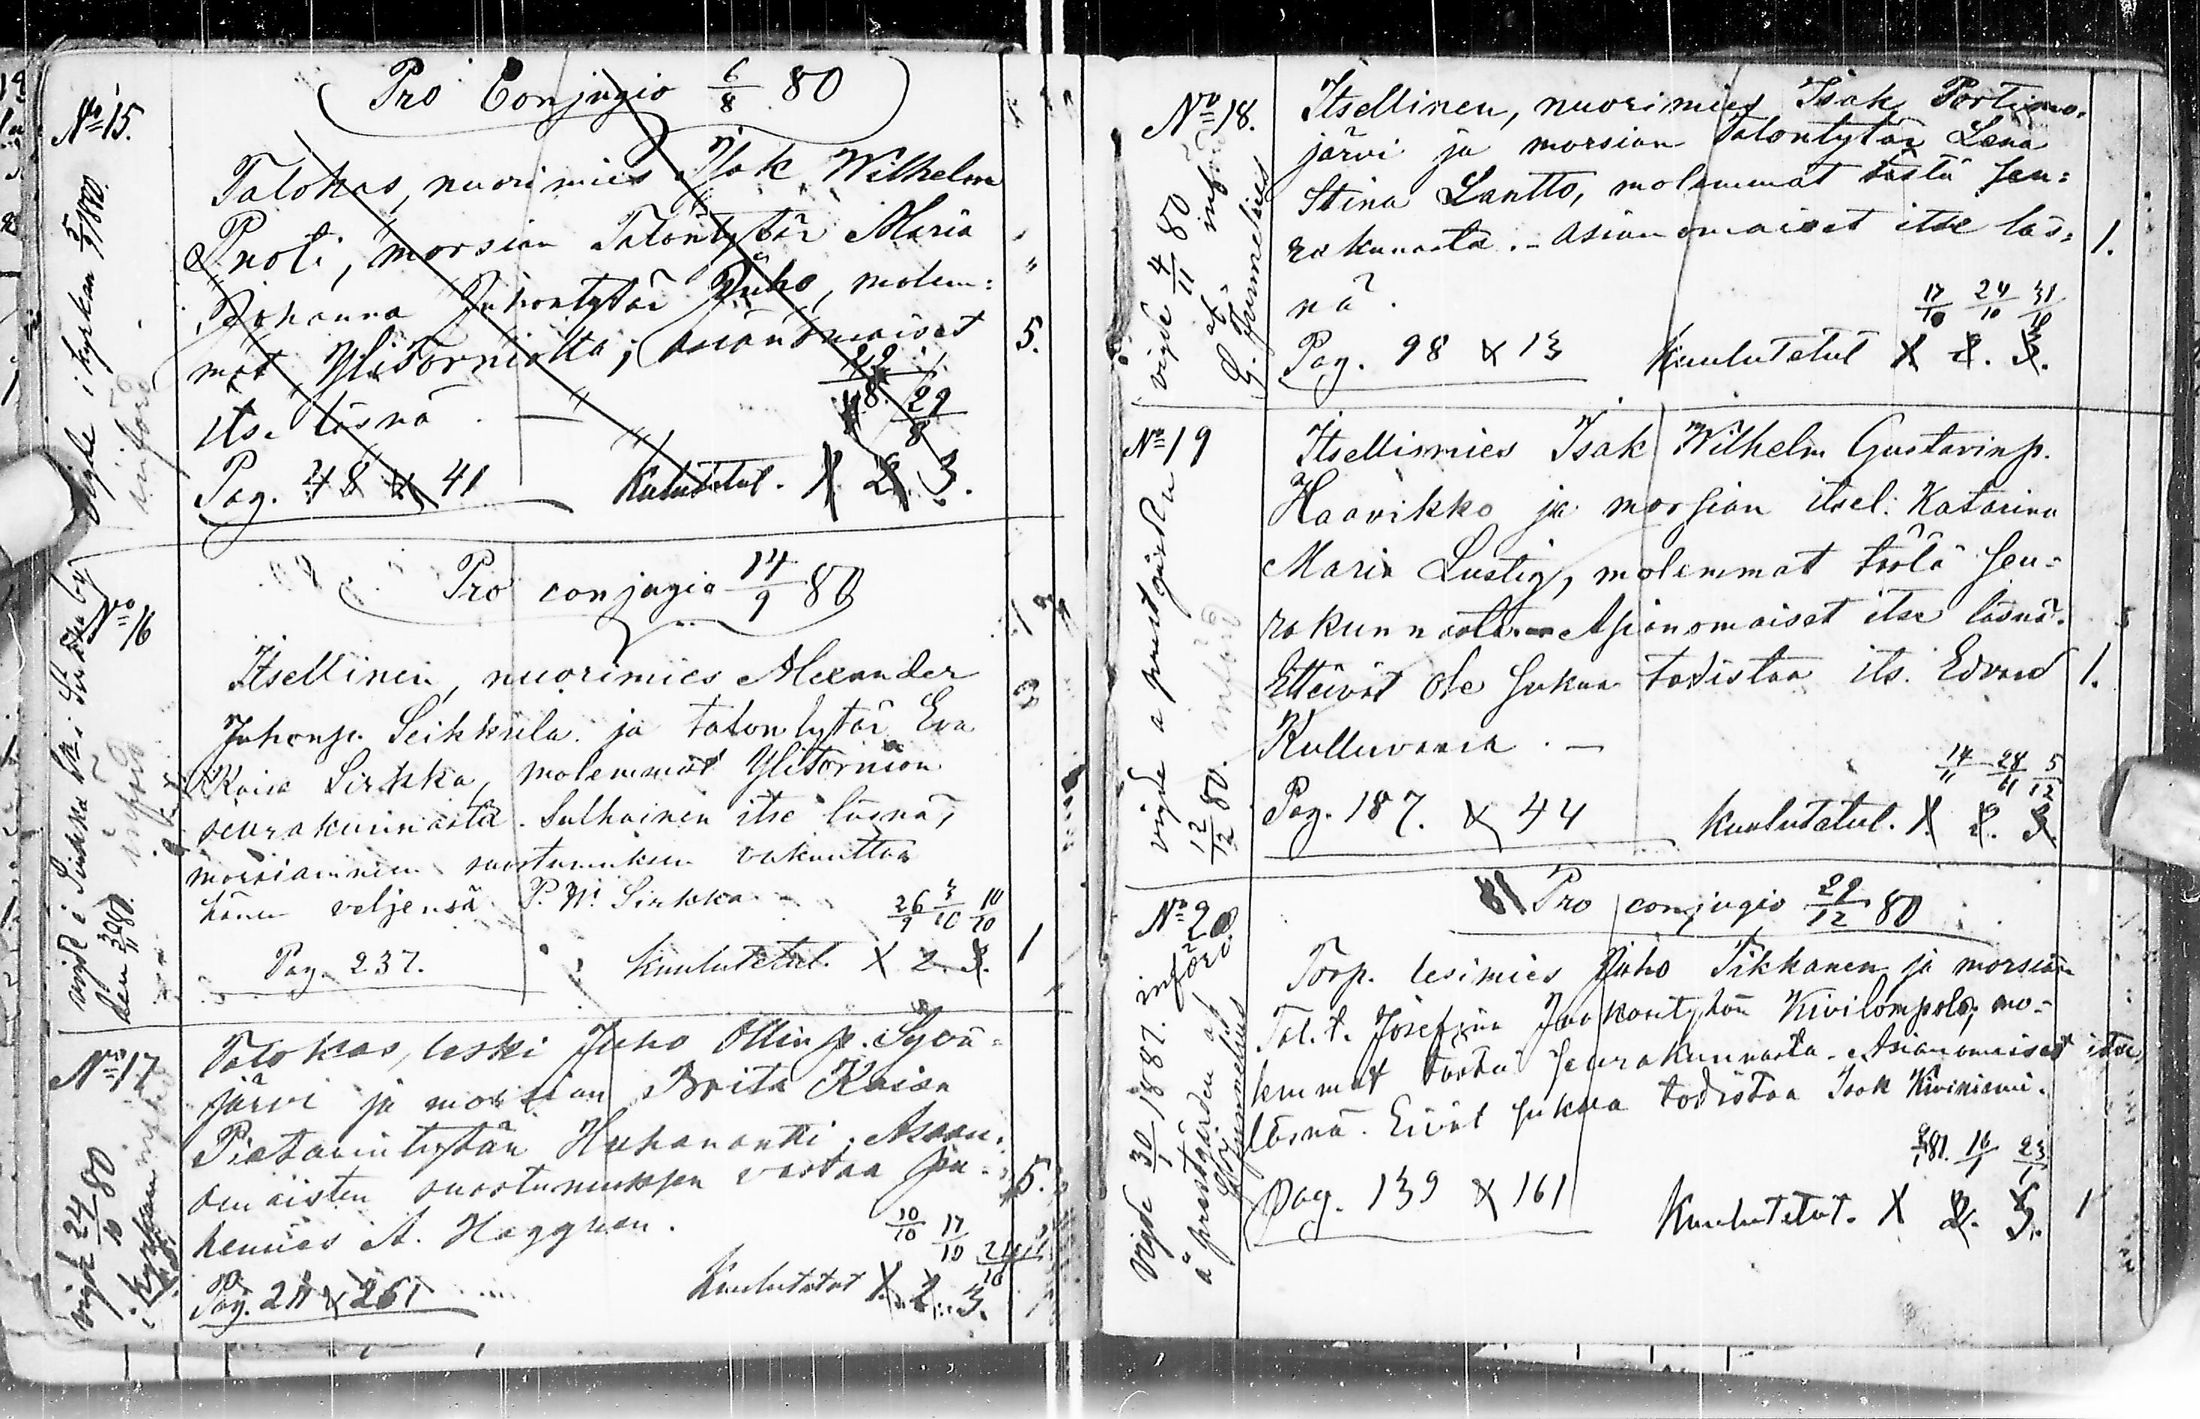 No 15.
Pro Conjugio 6/8 80
Talokas, nuorimies Isak Wilhelm
morsian Talontytär Maria
Johanna Juhontytär molem=
mat YliTorniolta; asianomaiset
itse läsnä. 29/8
Pag. 48 & 41 Kuulutetut. 1. 2. 3.
5.
vigde i kyrkan
införd
No 16
Pro conjugio 14/9 80
Itsellinen, nuorimies Alexander
Juhonp. Seikkula ja talontytär Eva
Kaisa Sirkka, molemmat YliTornion
seurakunnasta. Sulhainen itse läsnä,
morsiammen suostumuksen vakuuttaa
hänen veljensä P. W. Sirkka
26/9 3/10 10/10
Pag. 237. Kuulutetut. 1 2. 3.
1
vigde i Sirkka by
den 30/11 80. införd
No 17
Talokas, leski Juho Ollinp. Syvä=
järvi ja morsian Brita Kaisa
Pietarintytär Huhanantti. Asian=
omaisten suostumuksen vastaa pu=
hemies A. Haggman.
10/10 17/10
Pag. 211 & 261 Kuulutetut 1. 2. 3.
5.
vigde 24/10 80
i kyrkan
No 18.
Itsellinen, nuorimies Isak Portimo=
järvi ja morsian Talontytär Lena
Stina Lantto, molemmat tästä seu=
rakunnasta. - Asianomaiset itse läs=
nä.
17/10 24/10 31/10
Pag. 98 & 13 Kuulutetut 1 2. 3.
1.
vigde 4/11 80
af
införd
No 19
Itsellismies Isak Wilhelm Gustavinp.
Haavikko ja morsian itsel. Katarina
Maria Lustig, molemmat tästä seu=
rakunnasta. Asianomaiset itse läsnä.
Etteivät ole sukua todistaa its. Edvard
Kulluvaara. —
14/11 28/11 5/12
Pag. 187. & 44 Kuulutetut. 1. 2. 3.
1.
vigde a prestgården
12/12 80. införd
No 20
Pro conjugio 29/12 80
Torp. lesimies Juho Tikkanen ja morsian
Tal. t. Josefiina Jaakontytär Kivilompolo, mo=
lemmat tästä seurakunnasta. Asianomaiset itse
läsnä. Eivät sukua todistaa Isak Kiviniemi.
9/1 81. 16/1 23/1
Pag. 139 & 161 Kuulutetut. 1 2. 3.
1
vigde 30/1 1881. införd
a prestgården af